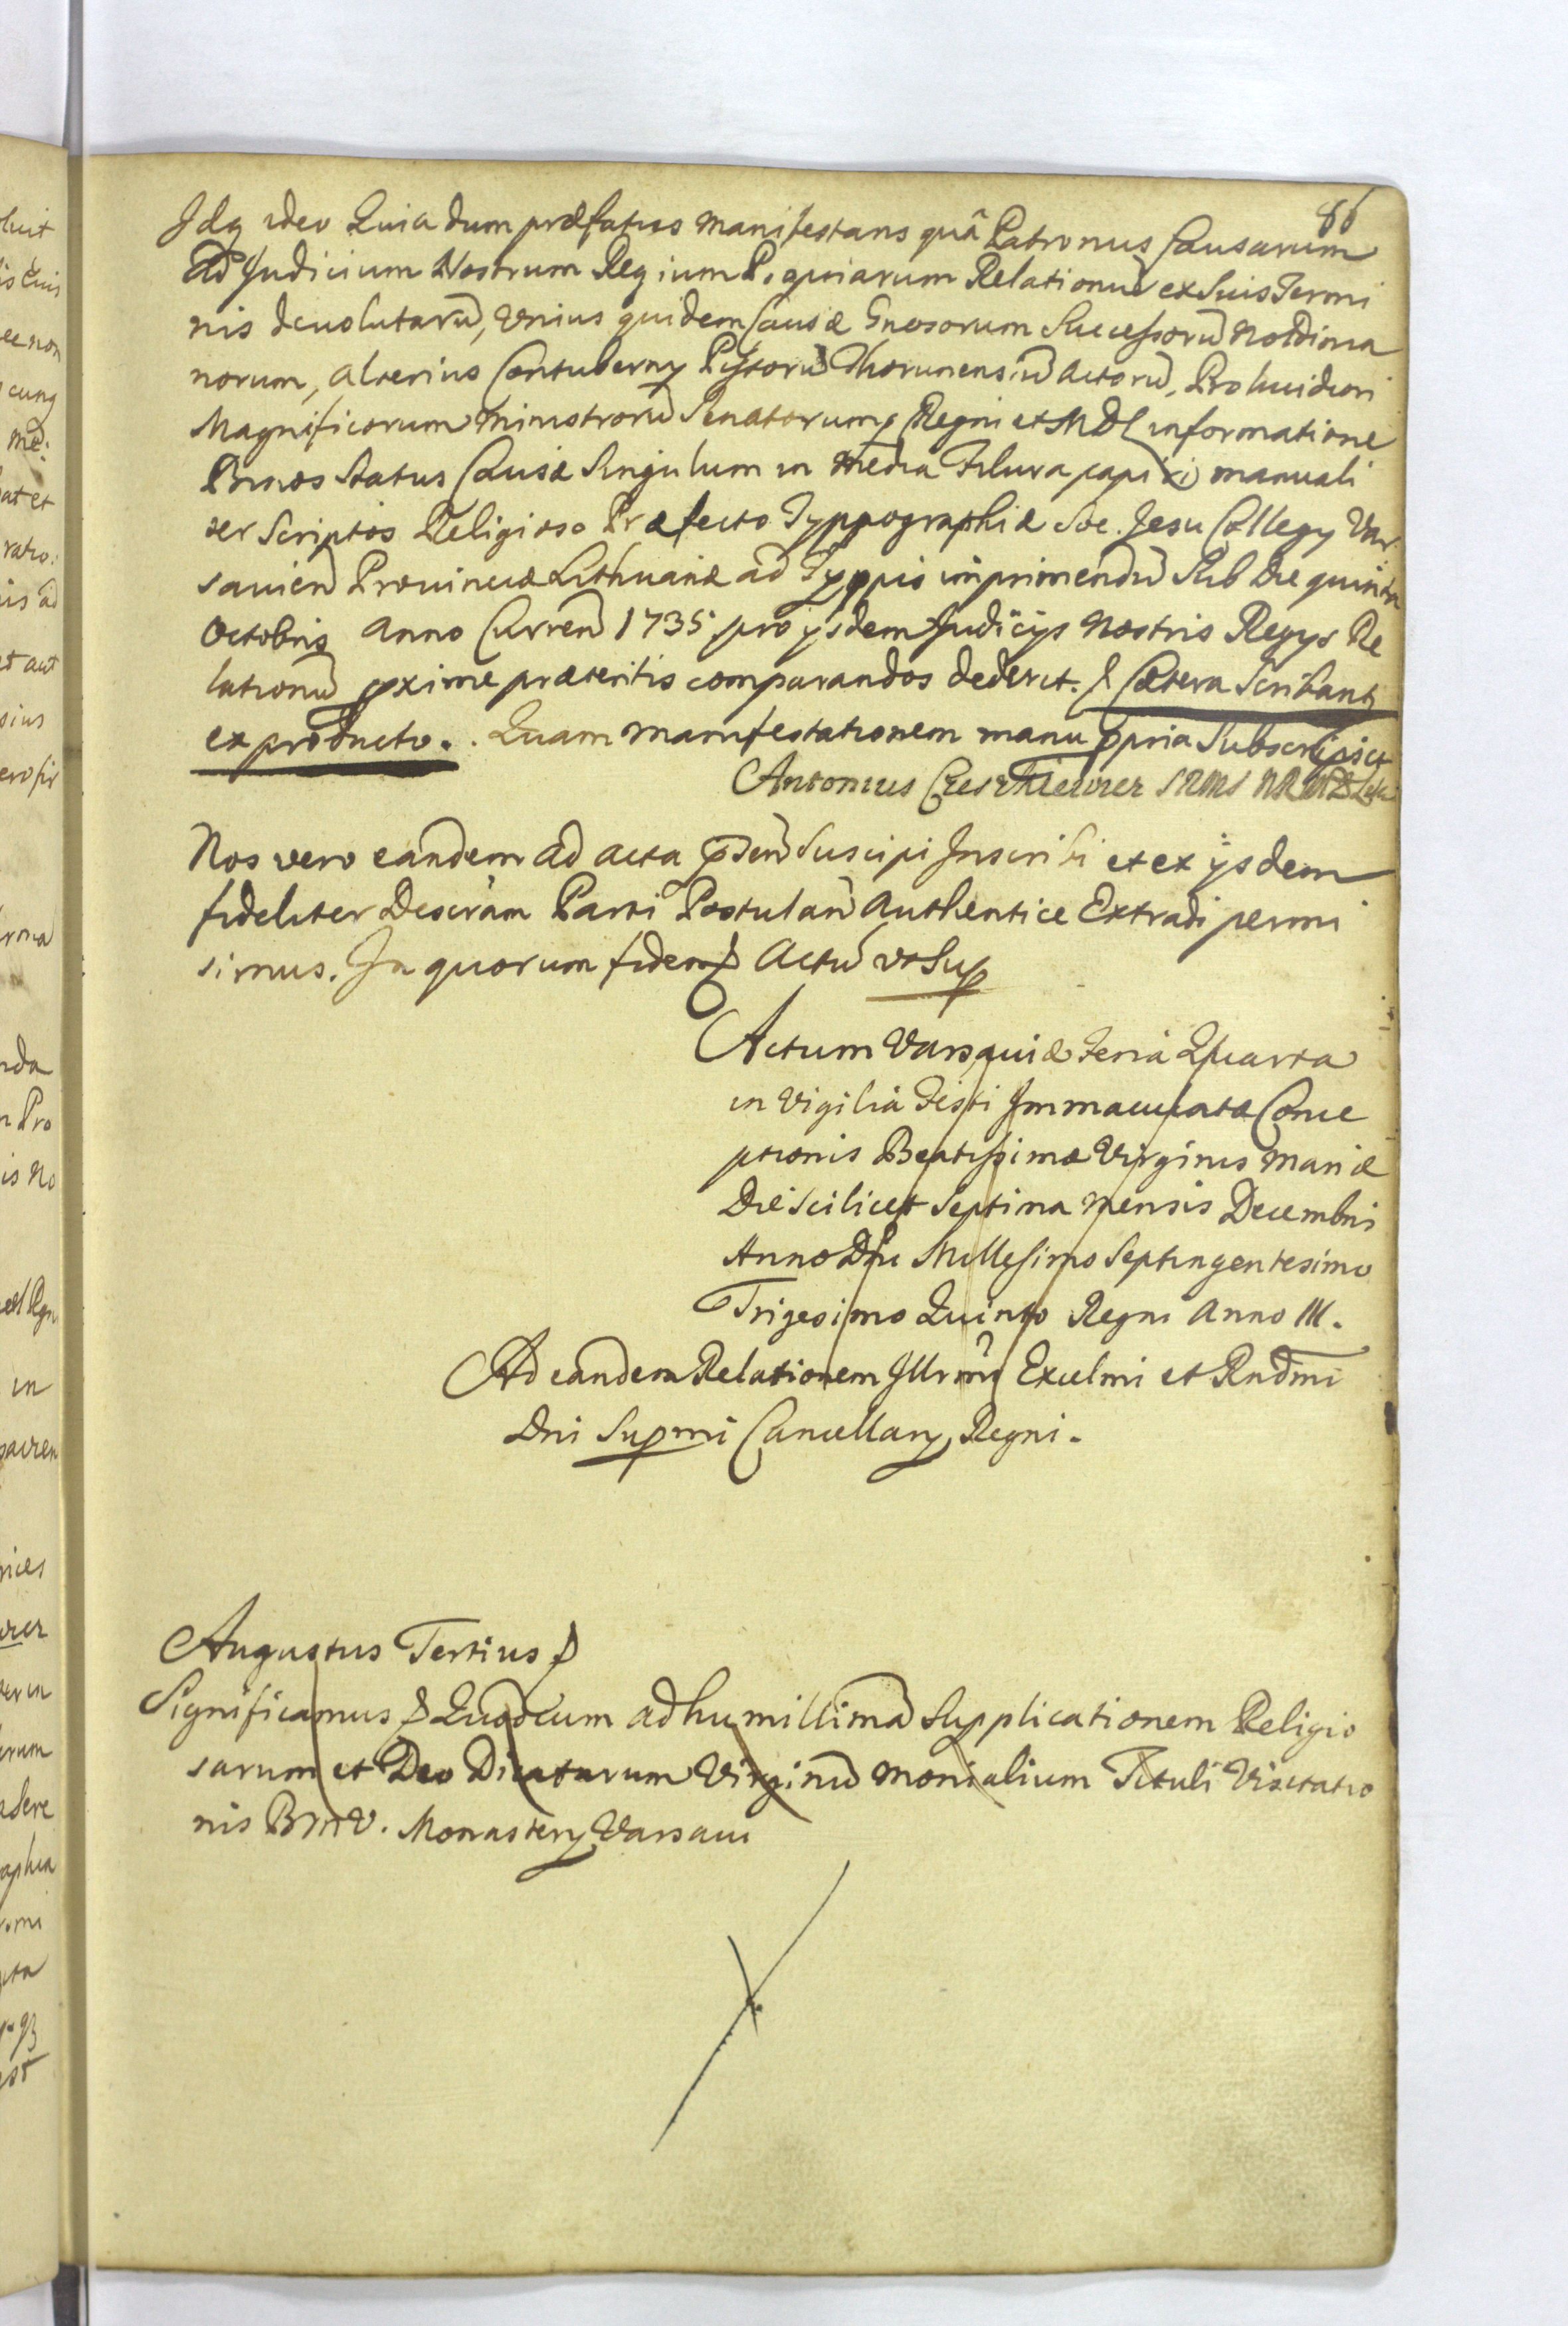 86
Idq ideo Quia dum præfatus manifestans quâ Patronus Causarum
ad Judicium Nostrum Regium P. curiarum Relationũ ex Suis Termi
nis devolutarũ, Unius quidem Causæ Gnosorum Successorũ
norum, alterius Contubernÿ Pistorũ Thorunensiũ actorũ, Pro lucidiori
Magnificorum Ministrorũ Senatorumq Regni et MDL informatione
Binos Status Causæ Singulum in media Filura manuali
ter Scriptos Religioso Præfecto Typpographiæ Soc. Jesu Collegÿ Var
savien Provinciæ Lithuaniæ ad Typpis imprimendũ Sub die quinta
Octobris Anno Curren 1735 pro ÿsdem Judicÿs Nostris Regÿs Re
lationũ pxime præteritis comparandos dederit. & Cætera Scribant
ex producto. Quam manifestationem manu ppria Subscripsit
Antonius
Nos vero eandem ad acta pñ Suscipi Inscribi et ex ÿsdem
fideliter Descram Parti Postulan Authentice Extradi permi
simus. In quorum fidem & Actũ ut Sup
Actum Varsaviæ Feria Quarta
in Vigilia Festi Immaculatæ Conce
ptionis Beatissimæ Virginis Mariæ
Die scilicet Septima mensis Decembris
Anno Dñi Millesimo Septingentesimo
Trigesimo Quinto Regni Anno III.
Ad eandem Relationem Illrmi Excelmi et Rndmi
Dni Supmi Cancellarÿ Regni.
Augustus Tertius &
Significamus & Quod cum ad humillimã Supplicationem Religio
sarum et Deo Dicatarum Virginũ Monialium Tituli Visitatio
nis BMV. Monasterÿ Varsavi